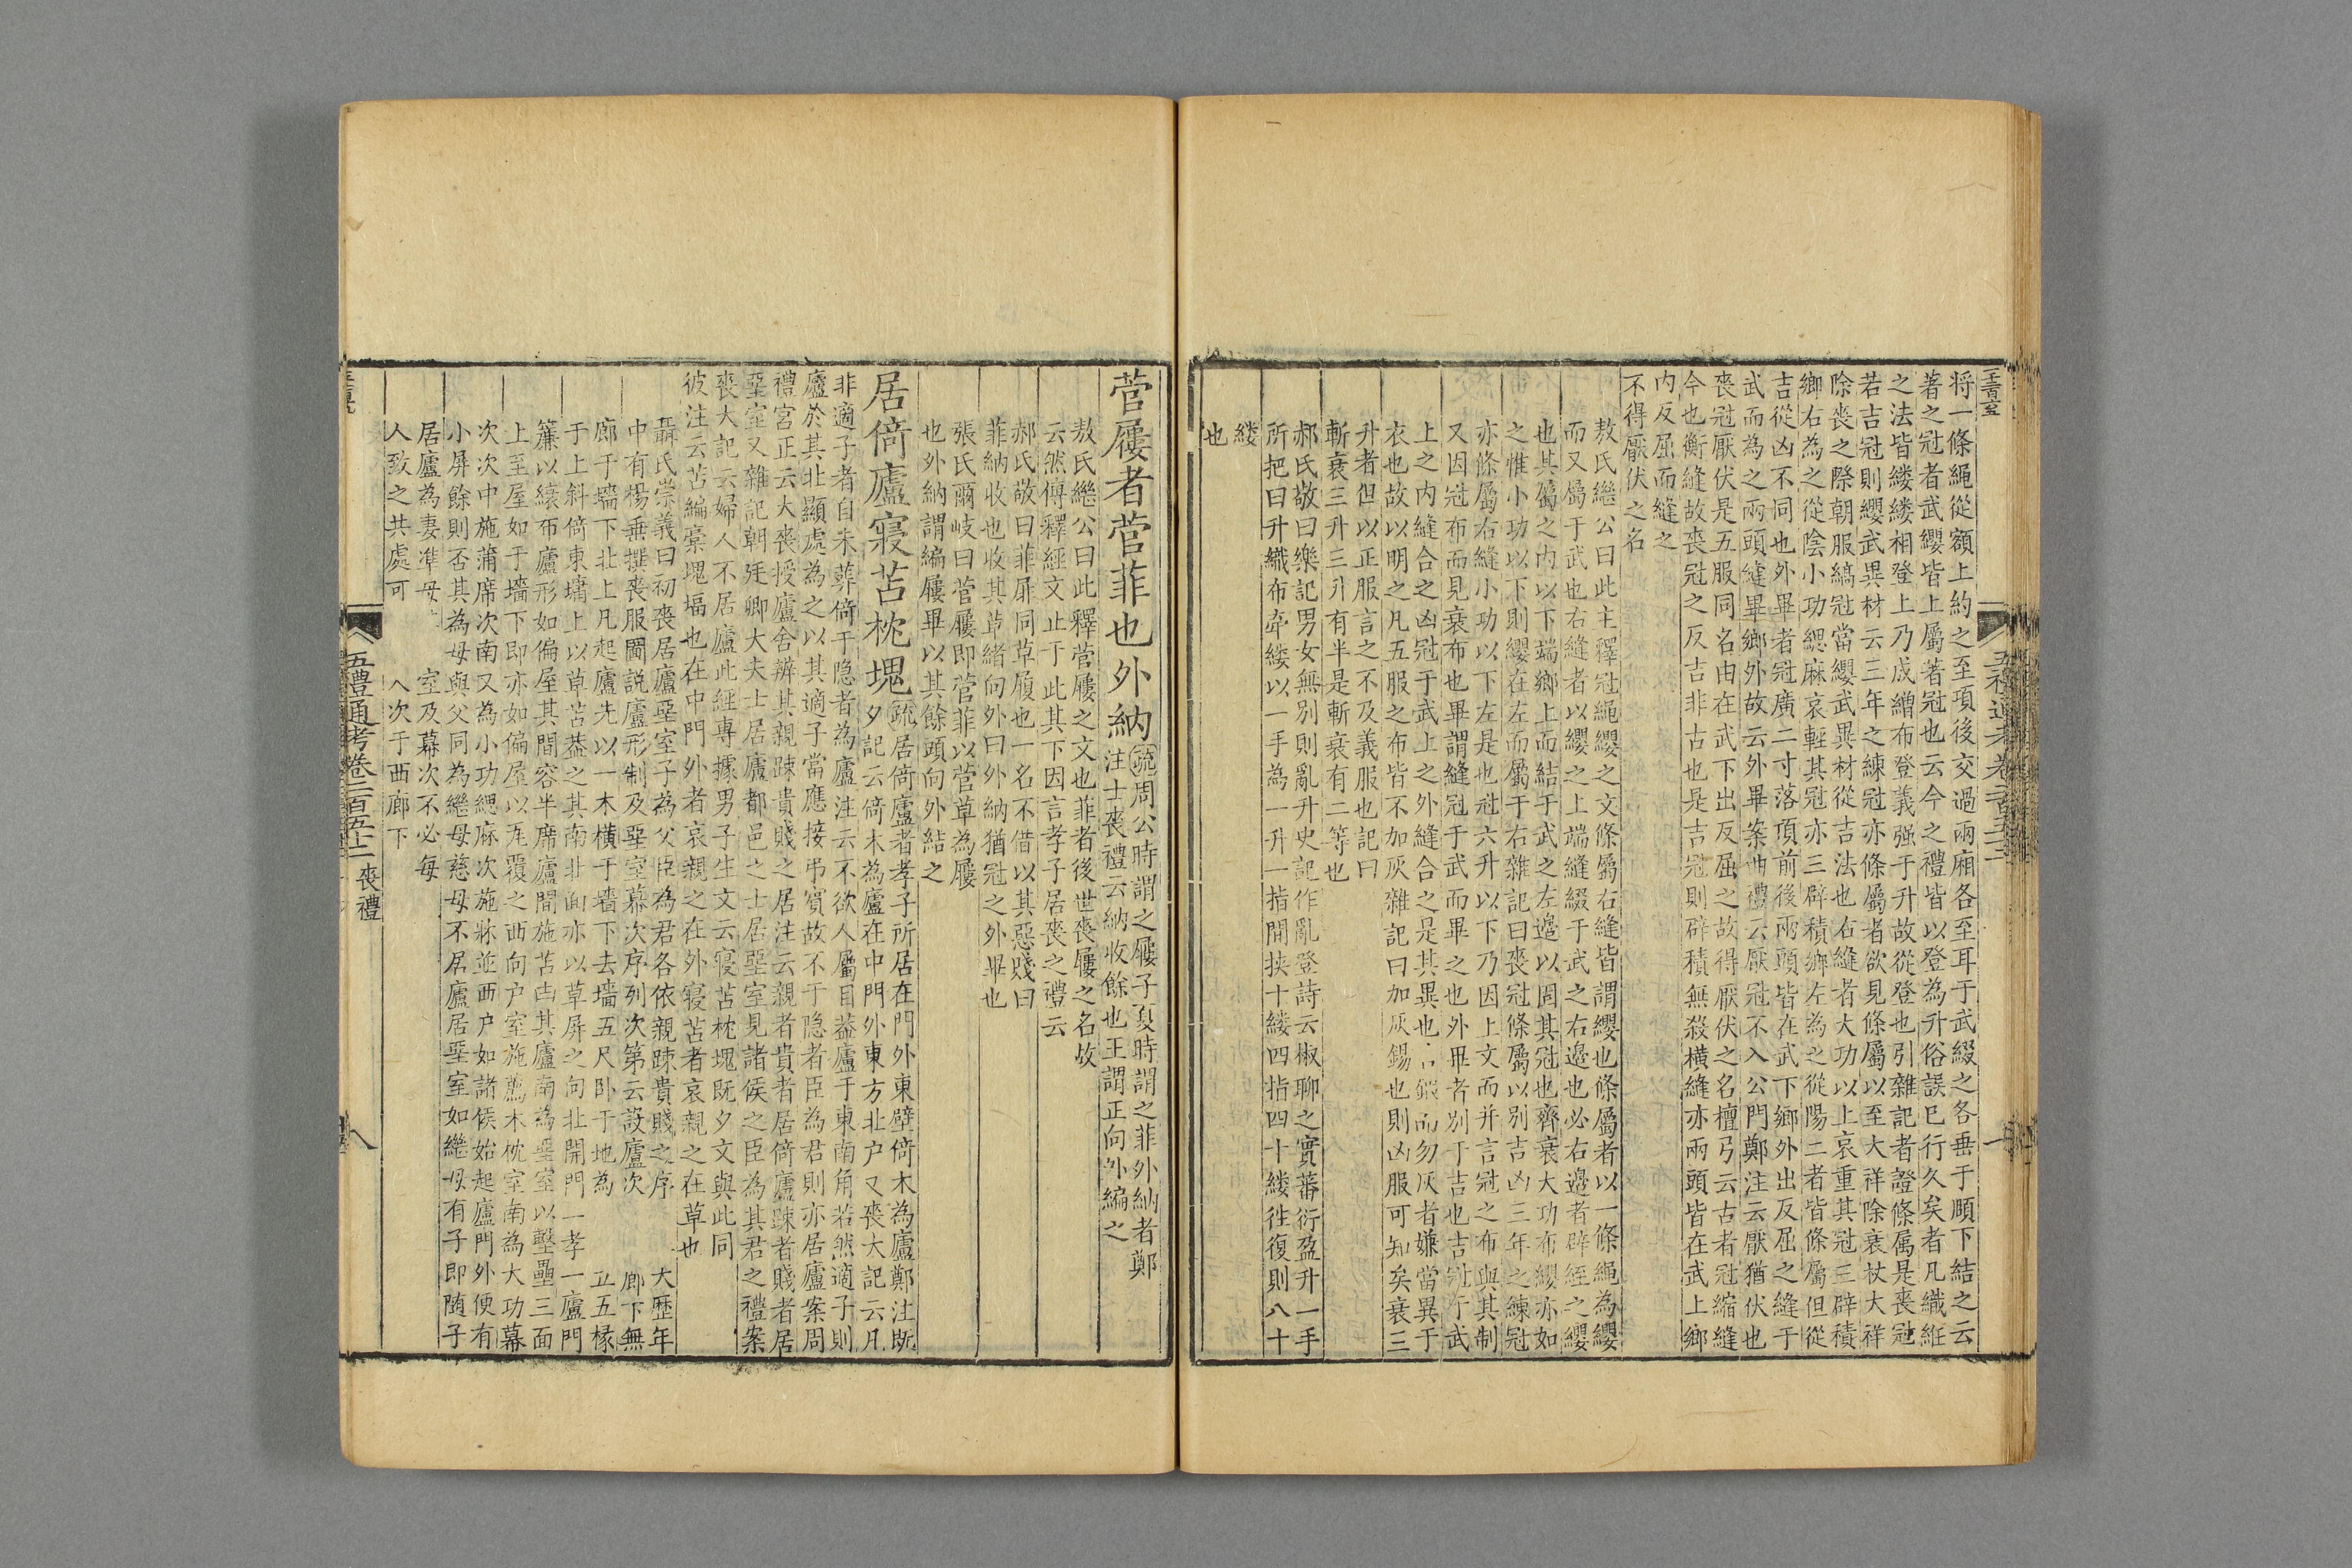 将一條繩從額上約之至項後交過兩廂各至耳于武綴之各垂于頤下結之云
著之冠者武纓皆上屬著冠也云今之禮皆以登為升俗誤已行久矣者凡織絍
之法皆縷縷相登上乃成繒布登義强于升故從登也引雜記者證條属是喪冠
若吉冠則纓武異材云三年之練冠亦條屬者欲見條屬以至大祥除衰杖大祥
除喪之際朝服縞冠當纓武異材從吉法也右縫者大功以上哀重其冠三辟積
鄉右為之從陰小功緦麻哀輕其冠亦三辟積鄉左為之從陽二者皆條屬但從
吉從凶不同也外畢者冠廣二寸落頂前後兩頭皆在武下鄉外出反屈之縫于
武而為之兩頭縫畢鄉外故云外畢案曲禮云厭冠不入公門鄭注云厭猶伏也
喪冠厭伏是五服同名由在武下出反屈之故得厭伏之名檀弓云古者冠縮縫
今也衡縫故喪冠之反吉非古也是吉冠則辟積無殺横縫亦兩頭皆在武上鄉
内反屈而縫之
不得厭伏之名
敖氏繼公曰此主釋冠繩纓之文條屬右縫皆謂纓也條屬者以一條繩為纓
而又屬于武也右縫者以纓之上端縫綴于武之右邉也必右邉者辟絰之纓
也其屬之内以下端鄉上而結于武之左邉以固其冠也齊衰大功布纓亦如
之惟小功以下則纓在左而屬于右雜記曰喪冠條屬以别吉凶三年之練冠
亦條屬右縫小功以下左是也冠六升以下乃因上文而并言冠之布與其制
又因冠布而見衰布也畢謂縫冠于武而畢之也外畢者别于吉也吉冠于武
上之内縫合之凶冠于武上之外縫合之是其異也云鍛而勿灰者嫌當異于
衣也故以明之凡五服之布皆不加灰雜記曰加灰錫也則凶服可知矣衰三
升者但以正服言之不及義服也記曰
斬衰三升三升有半是斬衰有二等也
郝氏敬曰樂記男女無别則亂升史記作亂登詩云椒聊之實蕃衍盈升一手
所把曰升織布牽縷以一手為一升一指間挟十縷四指四十縷徃復則八十
縷
也
菅屨者菅菲也外納
疏周公時謂之屨子夏時謂之菲外納者鄭
注士喪禮云納收餘也王謂正向外編之
敖氏繼公曰此釋菅屨之文也菲者後世喪屨之名故
云然傳釋經文止于此其下因言孝子居喪之禮云
郝氏敬曰菲屝同草履也一名不借以其惡賤曰
菲納收也收其草緒向外曰外納猶冠之外畢也
張氏爾岐曰菅屨即菅菲以菅草為屨
也外納謂編屨畢以其餘頭向外結之
居倚廬寢苫枕塊
疏居倚廬者孝子所居在門外東壁倚木為廬鄭注既
夕記云倚木為廬在中門外東方北户又喪大記云凡
非適子者自未葬倚于隐者為廬注云不欲人屬目葢廬于東南角若然適子則
廬於其北顯處為之以其適子當應接弔賓故不于隐者臣為君則亦居廬案周
禮宫正云大喪授廬舍辨其親踈貴賤之居注云親者貴者居倚廬踈者賤者居
堊室又雜記朝廷卿大夫士居廬都邑之士居堊室見諸侯之臣為其君之禮案
喪大記云婦人不居廬此經專據男子生文云寢苫枕塊既夕文與此同
彼注云苫編藁塊堛也在中門外者哀親之在外寢苫者哀親之在草也
聶氏崇義曰初喪居廬堊室子為父臣為君各依親踈貴賤之序 大歷年
中有楊垂撰喪服圖説廬形制及堊室幕次序列次第云設廬次 廊下無
廊于墻下北上凡起廬先以一木横于墻下去墻五尺卧于地為 立五椽
于上斜倚東墉上以草苫葢之其南北面亦以草屏之向北開門一孝一廬門
簾以縗布廬形如偏屋其間容半席廬間施苫凷其廬南為堊室以墼壘三面
上至屋如于墻下即亦如偏屋以瓦覆之西向户室施薦木枕室南為大功幕
次次中施蒲席次南又為小功緦麻次施牀並西户如諸侯始起廬門外便有
小屏餘則否其為母與父同為繼母慈母不居廬居堊室如繼母有子即随子
居廬為妻凖母 室及幕次不必每
人致之共處可 次于西廊下
五禮通考卷二百五十二 喪禮
八